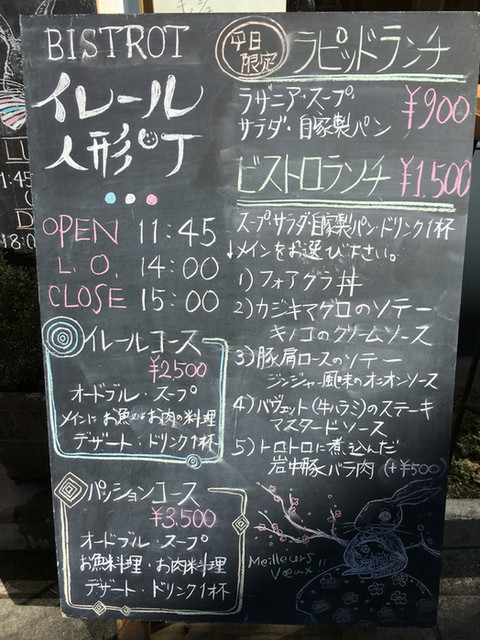 BISTROT
イレール
人形町
OPEN 11:45
L.O. 14:00
CLOSE 15:00
イレールコース
¥2,500
オードブル・スープ
メインに お魚又はお肉の料理
デザート・ドリンク1杯
パッションコース
¥3,500
オードブル・スープ
お魚料理・お肉料理
デザート・ドリンク1杯
平日限定 ラピッドランチ
ラザニア・スープ・
サラダ・自家製パン ¥900
ビストロランチ ¥1,500
スープ・サラダ・自家製パン・ドリンク1杯
↓メインをお選び下さい。
1) フォアグラ丼
2) カジキマグロのソテー
キノコのクリームソース
3) 豚肩ロースのソテー
ジンジャー風味のオニオンソース
4) バヴェット(牛ハラミ)のステーキ
マスタードソース
5) トロトロに煮込んだ
岩中豚バラ肉 (+¥500)
Meilleurs
Vœux!!